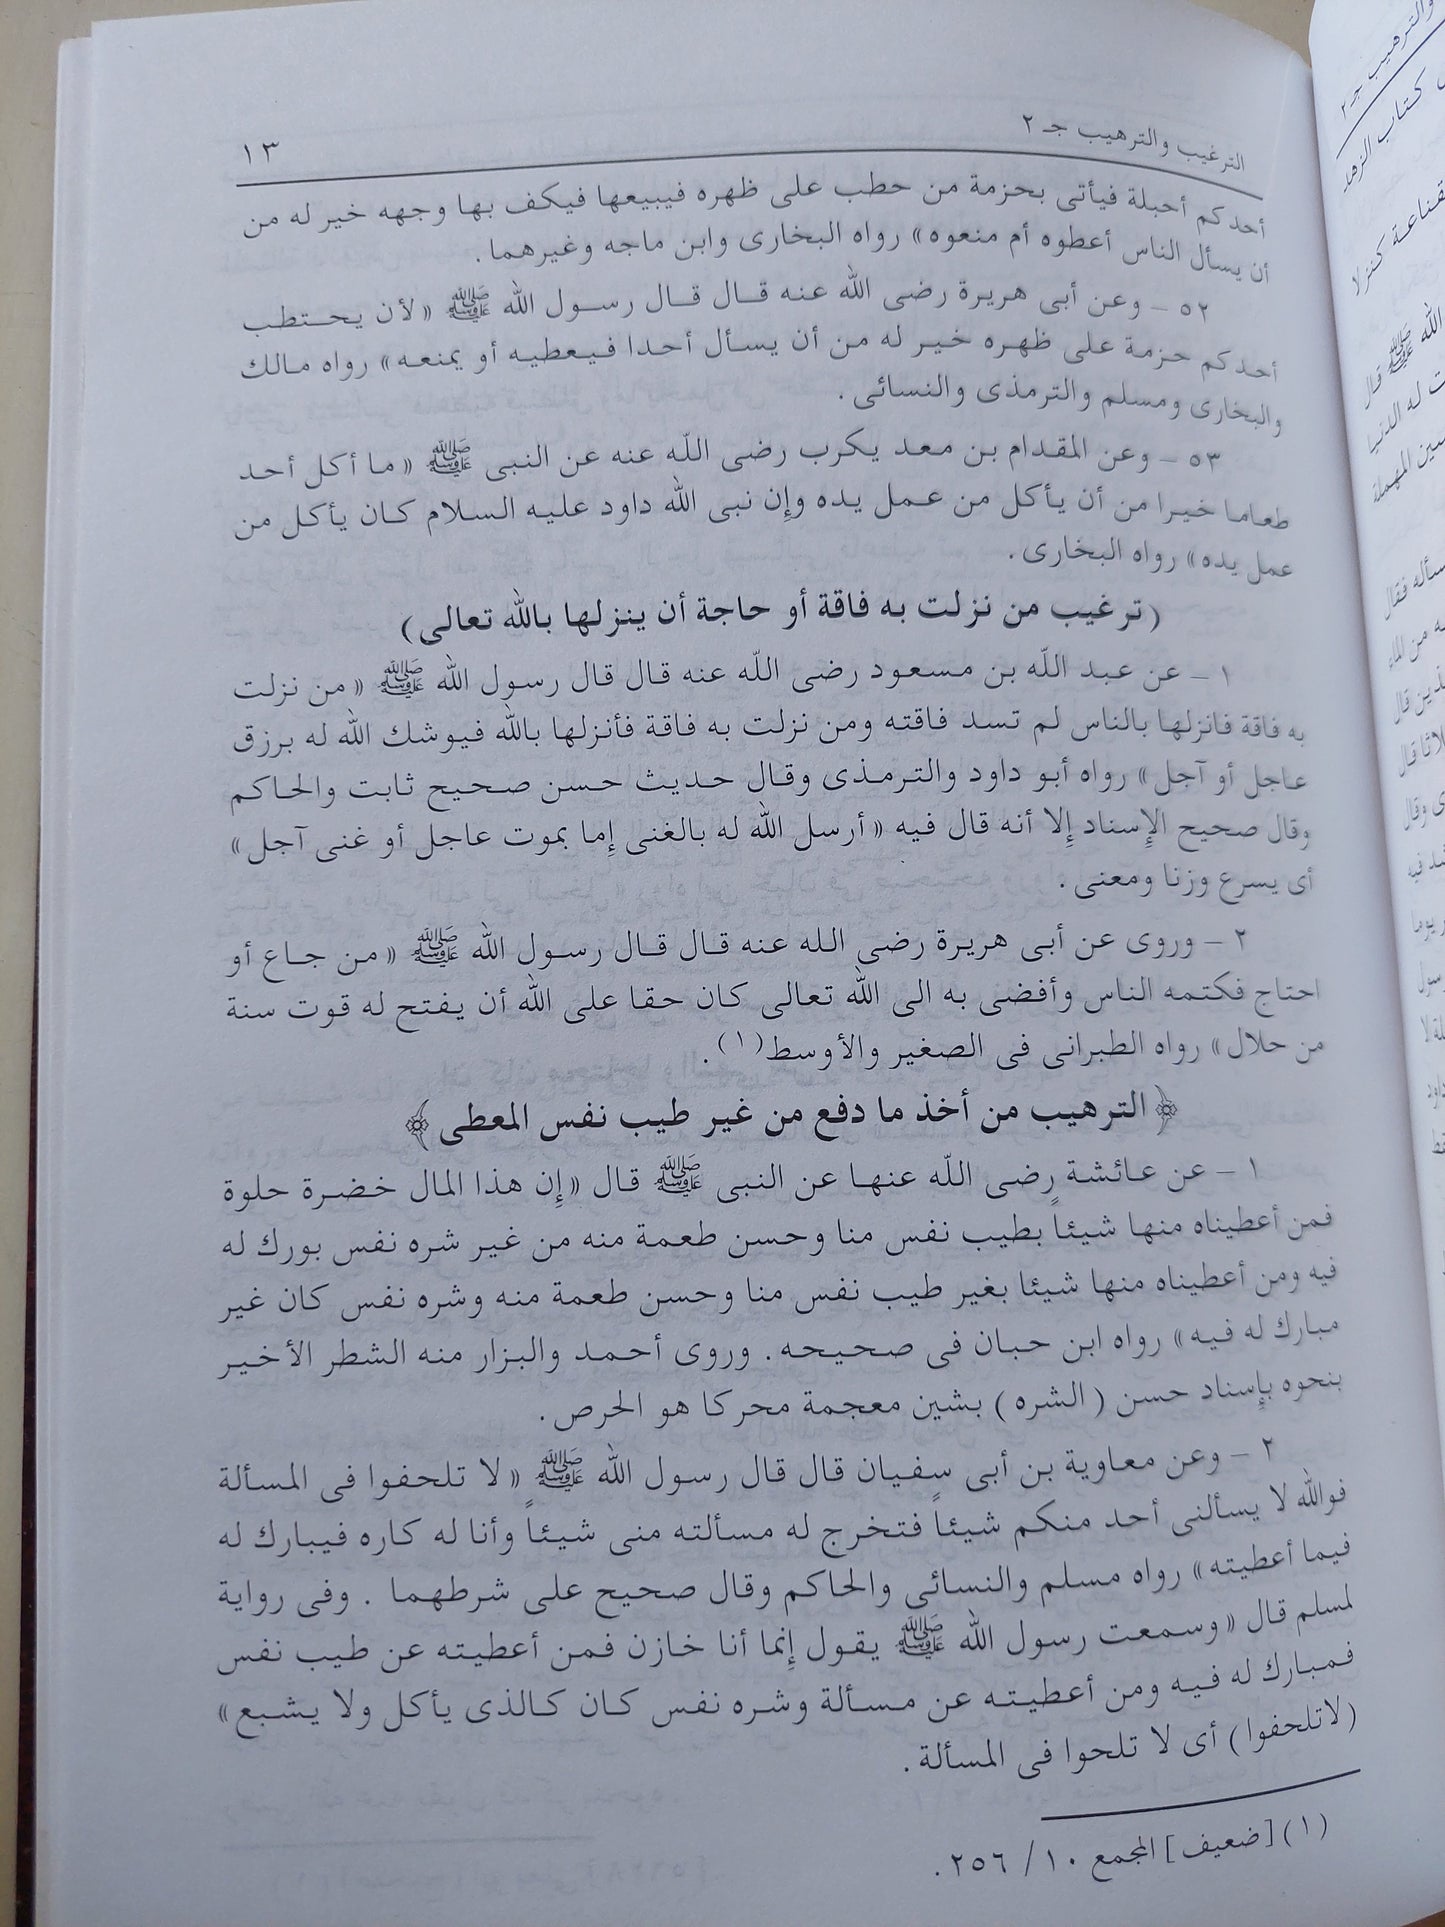 الترغيب والترهيب جـ ٢
١٣
أحدكم أحبلة فيأتى بحزمة من حطب على ظهره فيبيعها فيكف بها وجهه خير له من
أن يسأل الناس أعطوه أم منعوه» رواه البخارى وابن ماجه وغيرهما .
٥٢ - وعن أبى هريرة رضى الله عنه قال قال رسول الله ﷺ « لأن يحتطب
أحدكم حزمة على ظهره خير له من أن يسأل أحدا فيعطيه أو يمنعه » رواه مالك
والبخارى ومسلم والترمذى والنسائى .
٥٣ - وعن المقدام بن معد يكرب رضى اللّه عنه عن النبى ﷺ « ما أكل أحد
طعاما خيرا من أن يأكل من عمل يده وإن نبى الله داود عليه السلام كان يأكل من
عمل يده » رواه البخارى .
(ترغيب من نزلت به فاقة أو حاجة أن ينزلها بالله تعالى)
١ - عن عبد اللّه بن مسعود رضى اللّه عنه قال قال رسول الله ﷺ « من نزلت
به فاقة فانزلها بالناس لم تسد فاقته ومن نزلت به فاقة فأنزلها بالله فيوشك الله له برزق
عاجل أو آجل » رواه أبو داود والترمذى وقال حديث حسن صحيح ثابت والحاكم
وقال صحيح الإسناد إلا أنه قال فيه « أرسل الله له بالغنى إما بموت عاجل أو غنى آجل »
أى يسرع وزنا ومعنى .
٢ - وروى عن أبى هريرة رضى الله عنه قال قال رسول الله ﷺ « من جاع أو
احتاج فكتمه الناس وأفضى به الى الله تعالى كان حقا على الله أن يفتح له قوت سنة
من حلال » رواه الطبرانى فى الصغير والأوسط(١) .
﴿ الترهيب من أخذ ما دفع من غير طيب نفس المعطى ﴾
١ - عن عائشة رضى اللّه عنها عن النبى ﷺ قال « إن هذا المال خضرة حلوة
فمن أعطيناه منها شيئاً بطيب نفس منا وحسن طعمة منه من غير شره نفس بورك له
فيه ومن أعطيناه منها شيئا بغير طيب نفس منا وحسن طعمة منه وشره نفس كان غير
مبارك له فيه » رواه ابن حبان فى صحيحه . وروى أحمد والبزار منه الشطر الأخير
بنحوه بإسناد حسن ( الشره ) بشين معجمة محركا هو الحرص .
٢ - وعن معاوية بن أبى سفيان قال قال رسول الله ﷺ « لا تلحفوا فى المسألة
فوالله لا يسألنى أحد منكم شيئاً فتخرج له مسألته منى شيئاً وأنا له كاره فيبارك له
فيما أعطيته » رواه مسلم والنسائى والحاكم وقال صحيح على شرطهما . وفى رواية
لمسلم قال « وسمعت رسول الله ﷺ يقول إنما أنا خازن فمن أعطيته عن طيب نفس
فمبارك له فيه ومن أعطيته عن مسألة وشره نفس كان كالذى يأكل ولا يشبع »
(لاتلحفوا) أى لا تلحوا فى المسألة .
(١) [ضعيف] المجمع ١٠ / ٢٥٦ .
والترهيب جـ ٢
كتاب الزهد
كنز لا
الله ﷺ قال
له الدنيا
المهملة
فقال
من الماء
قال
قال
وقال
فيه
يوما